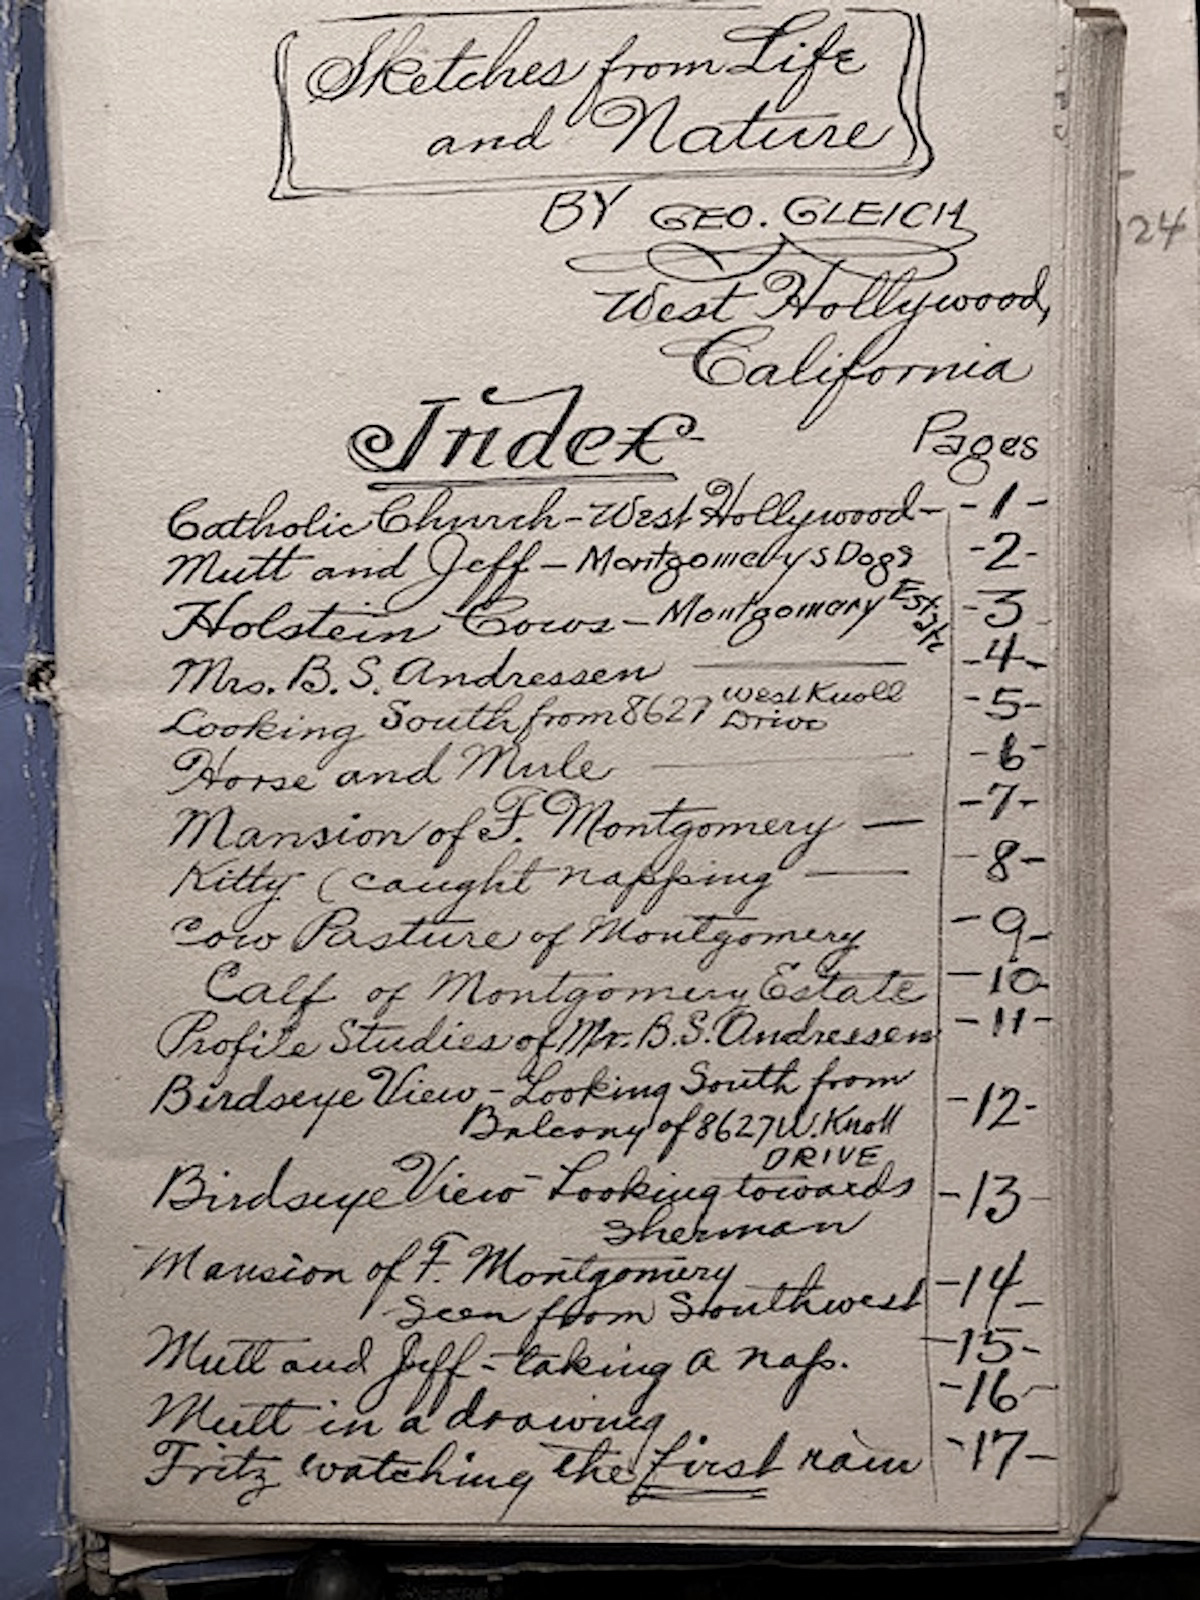 Sketches from Life
and Nature
BY GEO. GLEICH
West Hollywood,
California
Index
Pages
Catholic Church - West Hollywood - - 1 -
Mutt and Jeff - Montgomery's Dogs - 2 -
Holstein Cows - Montgomary Estate - 3
Mrs. B. S. Andressen - 4 -
Looking South from 8627 West Knoll Drive - 5 -
Horse and Mule - 6 -
Mansion of F. Montgomery - - 7 -
Kitty (caught napping - - 8 -
Cow Pasture of Montgomery - 9 -
Calf of Montgomery Estate - 10 -
Profile Studies of Mr. B.S. Andressen - 11 -
Birdseye View - Looking South from
Balcony of 8627 W. Knoll - 12 -
DRIVE
Birdseye View - Looking towards - 13 -
Sherman
Mansion of F. Montgomery - 14 -
Seen from Southwest
Mutt and Jeff - taking a nap. - 15 -
Mutt in a drawing - 16 -
Fritz watching the first rain - 17 -
24